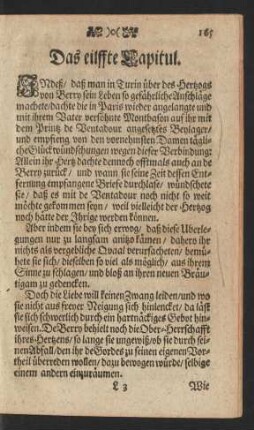 165
Das eilffte Capitul.
INdeß/ daß man in Turin über des Hertzogs
von Berry sein Leben so gefährliche Anschläge
machete/ dachte die in Paris wieder angelangte und
mit ihrem Vater versöhnte Montbason auf ihr mit
dem Printz de Ventadour angesetztes Beylager/
und empfieng von den vornehmsten Damen tägli-
che Glückwündschungen wegen dieser Verbindung:
Allein ihr Hertz dachte dennoch offtmals auch an de
Berry zurück/ und wann sie seine Zeit dessen Ent-
fernung empfangene Briefe durchlase/ wündschete
sie/ daß es mit de Ventadour noch nicht so weit
möchte gekommen seyn/ weil vielleicht der Hertzog
noch hätte der Ihrige werden können.
Aber indem sie bey sich erwog/ daß diese Uberle-
gungen nur zu langsam anitzo kämen/ dahero ihr
nichts als vergebliche Qvaal verursacheten/ bemü-
hete sie sich/ dieselben so viel als möglich/ aus ihrem
Sinne zu schlagen/ und bloß an ihren neuen Bräu-
tigam zu gedencken.
Doch die Liebe will keinen Zwang leiden/ und wo
sie nicht aus freyer Neigung sich hinlencket/ da läst
sie sich schwerlich durch ein hartnäckiges Gebot hin-
weisen. De Berry behielt noch die Ober-Herrschafft
ihres Hertzens/ so lange sie ungewiß/ ob sie durch sei-
nen Abfall/ den ihr de Gordes zu seinen eigenen Vor-
theil überreden wollen/ dazu bewogen würde/ selbige
einem andern einzuräumen.
L 3 Wie